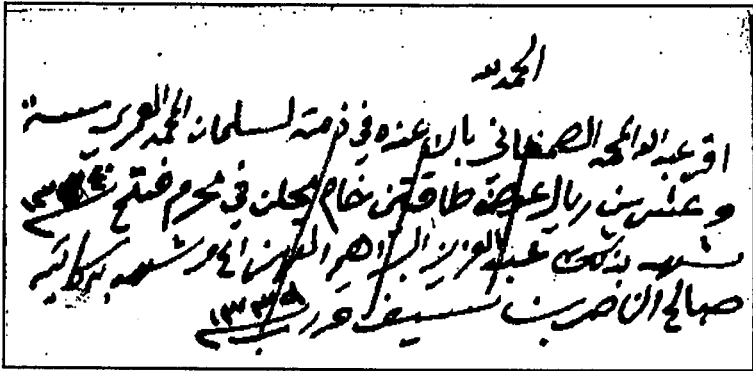 الحمد لله
اقر عبدالله المحمد الصمعاني بان عنده في ذمته لسلمان المحمد العمري ستة
وعشرين ريال عوض طاقتين خام يحلن في محرم فتح ١٣٤٠
شهد بذلك عبدالعزيز البراهيم وشهد به كاتبه
صالح الناصر بن سيف حرر ١٣٣٨